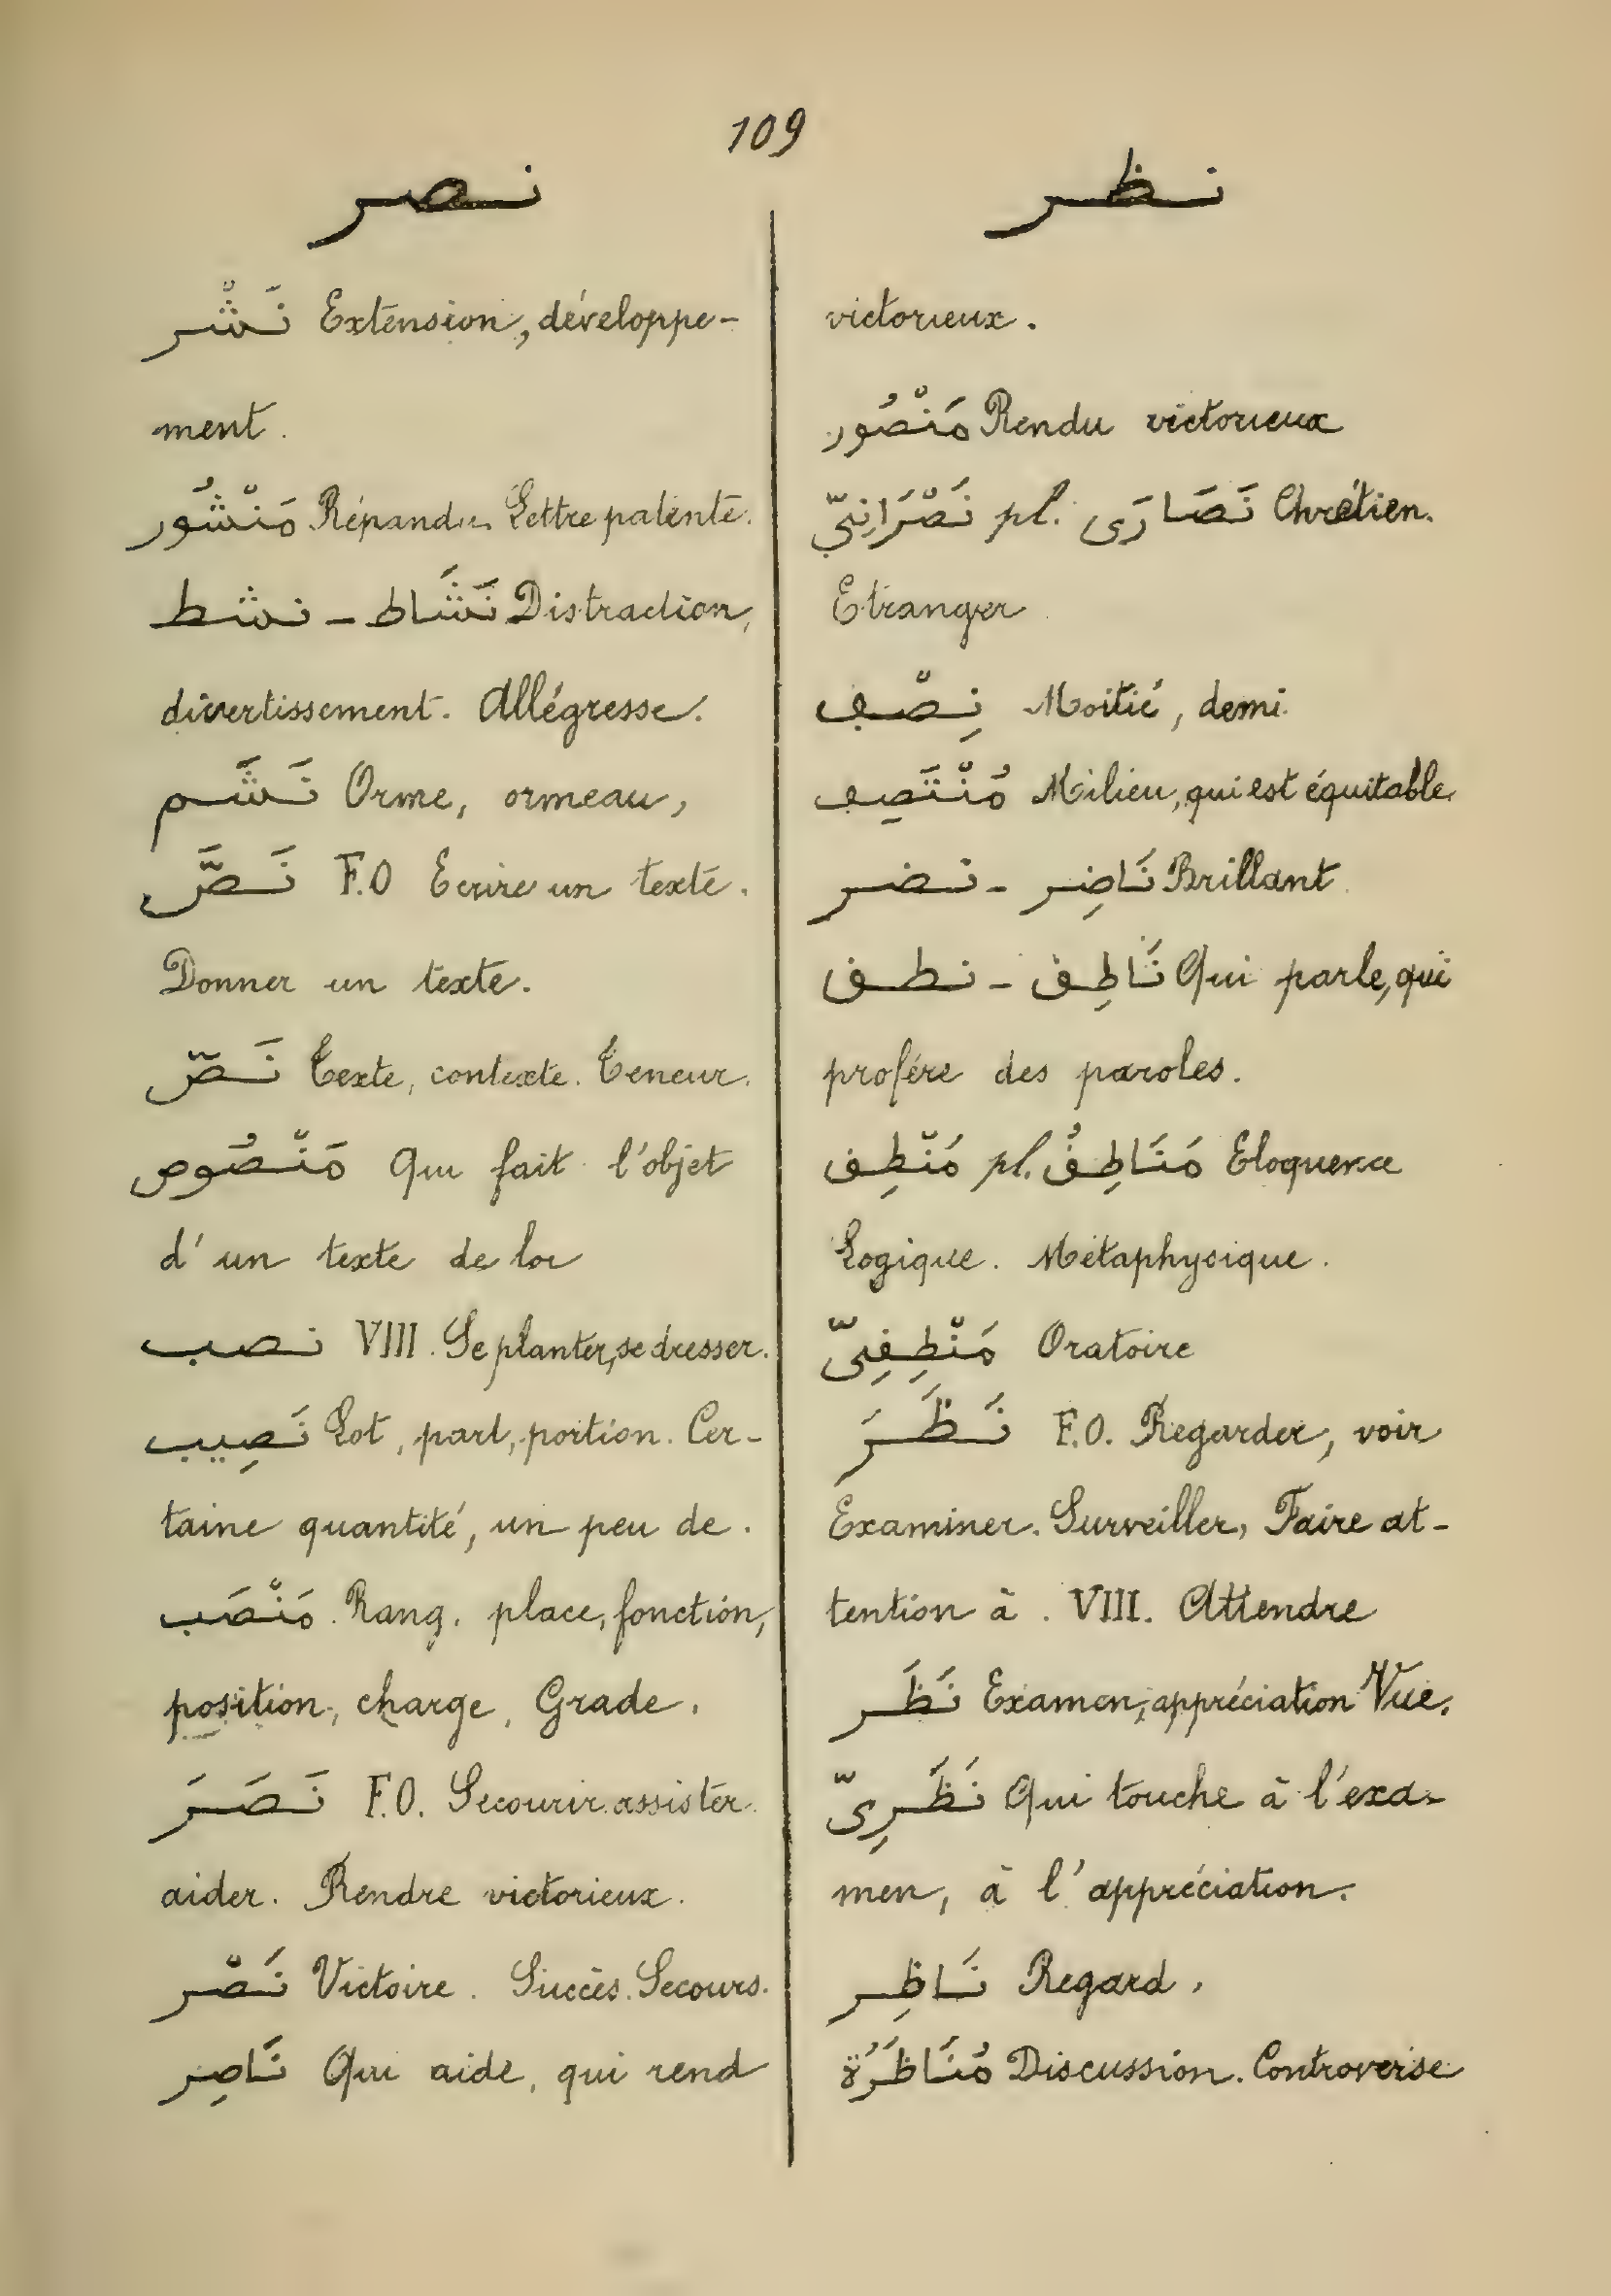 109
نصر
نَشْر Extension, développe-
ment.
مَنْشُور Répandu. Lettre patente.
نشط - نَشَاط Distraction,
divertissement. Allégresse.
نَشَم Orme, ormeau,
نَصَّ F.O Ecrire un texte.
Donner un texte.
نَصّ Texte, contexte. Teneur.
مَنْصُوص Qui fait l'objet
d'un texte de loi
نصب VIII. Se planter, se dresser.
نَصِيب Lot, part, portion. Cer-
taine quantité, un peu de.
مَنْصَب Rang, place, fonction,
position, charge, Grade.
نَصَرَ F.O. Secourir assister
aider. Rendre victorieux.
نَصْر Victoire. Succès. Secours.
نَاصِر Qui aide, qui rend
نظر
victorieux.
مَنْصُور Rendu victorieux
نَصْرَانِيّ pl. نَصَارَى Chrétien.
Etranger
نِصْف Moitié, demi.
مُنْتَصِف Milieu, qui est équitable.
نضر - نَاضِر Brillant
نطق - نَاطِق Qui parle, qui
profère des paroles.
مَنْطِق pl. مَنَاطِقُ Eloquence
Logique. Métaphysique.
مَنْطِقِىّ Oratoire
نَظَرَ F.O. Regarder, voir
Examiner. Surveiller, Faire at-
tention à. VIII. Attendre
نَظَر Examen, appréciation Vue.
نَظَرِىّ Qui touche à l'exa-
men, à l'appréciation.
نَاظِر Regard,
مُنَاظَرَة Discussion. Controverse